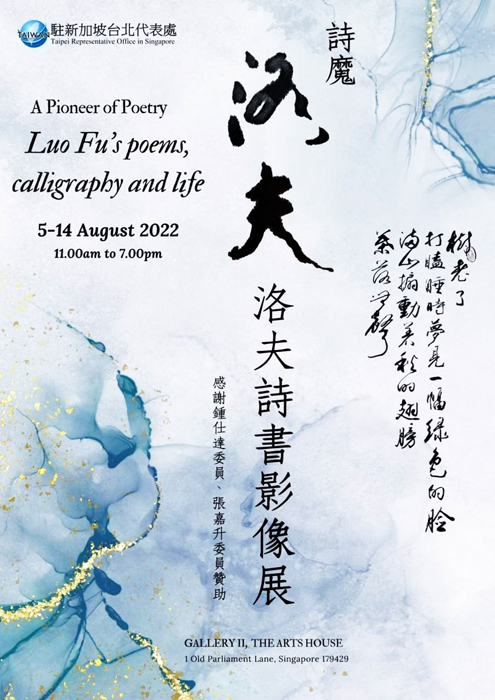 駐新加坡台北代表處
TAIWAN
Taipei Representative Office in Singapore
詩魔
洛夫
A Pioneer of Poetry
Luo Fu's poems,
calligraphy and life
5-14 August 2022
11.00am to 7.00pm
樹老了
打瞌睡時夢見一幅綠色的臉
滿山搧動着秋的翅膀
葉落無聲
洛夫詩書影像展
感謝鍾仕達委員、張嘉升委員贊助
GALLERY II, THE ARTS HOUSE
1 Old Parliament Lane, Singapore 179429